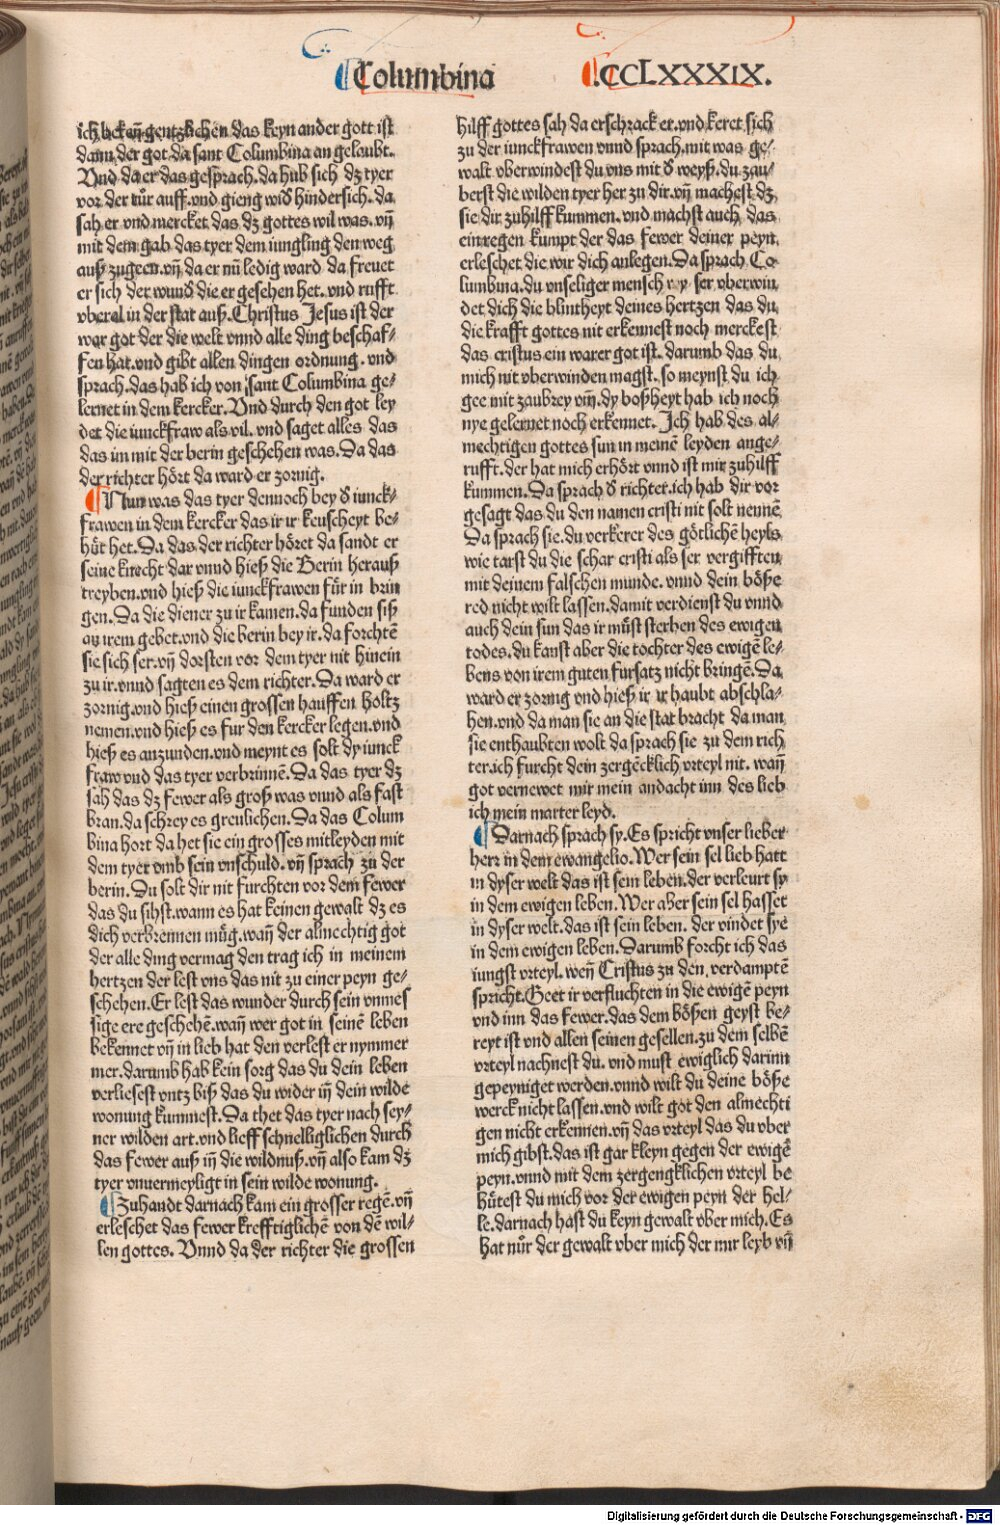 Columbina
.CCLXXXIX.
ich bekeñ gentzlichen das keyn ander gott ist
dann der got da sant Columbina an gelaubt.
Vnd da er das gesprach. da hub sich dz tyer
vor der tür auff. vnd gieng wiđ hindersich. da
sah er vnd mercket das dz gottes wil was. vñ
mit dem gab das tyer dem iungling den weg
auß zugeen. vñ da er nũ ledig ward. da frevet
er sich der wunđ die er gesehen het. vnd rufft
vberal in der stat auß. Christus Jesus ist der
war got der die welt vnnd alle ding beschaf⸗
fen hat. vnd gibt allen dingen ordnung. vnd
sprach. das hab ich von sant Columbina ge⸗
lernet in dem kercker. Vnd durch den got ley
det die iunckfraw als vil. vnd saget alles das
das im mit der berin geschehen was. Da das
der richter hört da ward er zornig.
Nun was das tyer dennoch bey đ iunck⸗
frawen in dem kercker das ir ir keuscheyt be⸗
hüt het. Da das der richter höret da sandt er
seine knecht dar vnnd hieß die Berin herauß
treyben. vnd hieß die iunckfrawen für in brin
gen. Da die diener zu ir kamen. da funden siß
an irem gebet. vnd die berin bey ir. da forchtē
sie sich ser. vñ dorsten vor dem tyer nit hinein
zu ir. vnnd sagten es dem richter. Da ward er
zornig. vnd hieß einen grossen hauffen holtz
nemen. vnd hieß es fur den kercker legen. vnd
hieß es anzunden. vnd meynt es solt dy iunck
fraw vnd das tyer verbrinnē. Da das tyer dz
sah das dz fewer als groß was vnnd als fast
bran. da schrey es greulichen. Da das Colum
bina hort da het sie ein grosses mitleyden mit
dem tyer vmb sein vnschuld. vñ sprach zu der
berin. Du solt dir nit furchten vor dem fewer
das du sihst. wann es hat keinen gewalt dz es
dich verbrennen müg. wañ der almechtig got
der alle ding vermag den trag ich in meinem
hertzen der lest vns das nit zu einer peyn ge⸗
schehen. Er lest das wunder durch sein vnmes
sige ere geschehē. wañ wer got in seinē leben
bekennet vñ in lieb hat den verlest er nymmer
mer. darumb hab kein sorg das du dein leben
verliesest vntz biß das du wider iñ dein wilde
wonung kummest. Da thet das tyer nach sey⸗
ner wilden art. vnd lieff schnelliglichen durch
das fewer auß iñ die wildnuß. vñ also kam dz
tyer vnuermeyligt in sein wilde wonung.
Zuhandt darnach kam ein grosser regē. vñ
erleschet das fewer krefftiglichē von dē wil⸗
len gottes. Vnnd da der richter die grossen
hilff gottes sah da erschrack er. vnd keret sich
zu der iunckfrawen vnnd sprach. mit was ge⸗
walt vberwindest du vns mit đ weyß. du zau⸗
berst die wilden tyer her zu dir. vñ machest dz
sie dir zuhilff kummen. vnd machst auch das
ein regen kumpt der das fewer deiner peyn
erleschet die wir dich anlegen. Da sprach Co
lumbina. du vnseliger mensch ser vberwin
det dich die blintheyt deines hertzen das du
die krafft gottes nit erkennest noch merckest
das cristus ein warer got ist. darumb das du
mich nit vberwinden magst. so meynst du ich
gee mit zaubrey vm. dy boßheyt hab ich noch
nye gelernet noch erkennet. Ich hab des al⸗
mechtigen gottes sun in meinē leyden ange⸗
rufft. der hat mich erhört vnnd ist mir zuhilff
kummen. Da sprach đ richter. ich hab dir vor
gesagt das du den namen cristi nit solt nennē
Da sprach sie. du verkerer des götlichē heyls
wie tarst du die schar cristi als ser vergifften
mit deinem falschen munde. vnnd dein böße
red nicht wilt lassen. damit verdienst du vnnd
auch dein sun das ir müst sterben des ewigen
todes. du kanst aber die tochter des ewigē le⸗
bens von irem guten fursatz nicht bringē. Da
ward er zornig vnd hieß ir ir haubt abschla⸗
hen. vnd da man sie an die stat bracht da man
sie enthaubten wolt da sprach sie zu dem rich
ter. ich furcht dein zergēcklich vrteyl nit. wañ
got vernewet mir mein andacht inn des lieb
ich mein marter leyd.
Darnach sprach sy. Es spricht vnser lieber
herr in dem ewangelio. Wer sein sel lieb hatt
in dyser welt das ist sein leben. der verleurt sy
in dem ewigen leben. Wer aber sein sel hasset
in dyser welt. das ist sein leben. der vindet sye
in dem ewigen leben. Darumb forcht ich das
iungst vrteyl. weñ Cristus zu den verdamptē
spricht. Geet ir verfluchten in die ewigē peyn
vnd inn das fewer. das dem bößen geyst be⸗
reyt ist vnd allen seinen gesellen. zu dem selbē
vrteyl nachnest du. vnd must ewiglich darinn
gepeyniget werden. vnnd wilt du deine böße
werck nicht lassen. vnd wilt got den almechti
gen nicht erkennen. vñ das vrteyl das du vber
mich gibst. das ist gar kleyn gegen der ewigē
peyn. vnnd mit dem zergengklichen vrteyl be
hütest du mich vor der ewigen peyn der hel⸗
le. darnach hast du keyn gewalt vber mich. Es
hat nür der gewalt vber mich der mir leyb vñ
Digitalisierung gefördert durch die Deutsche Forschungsgemeinschaft - DFG